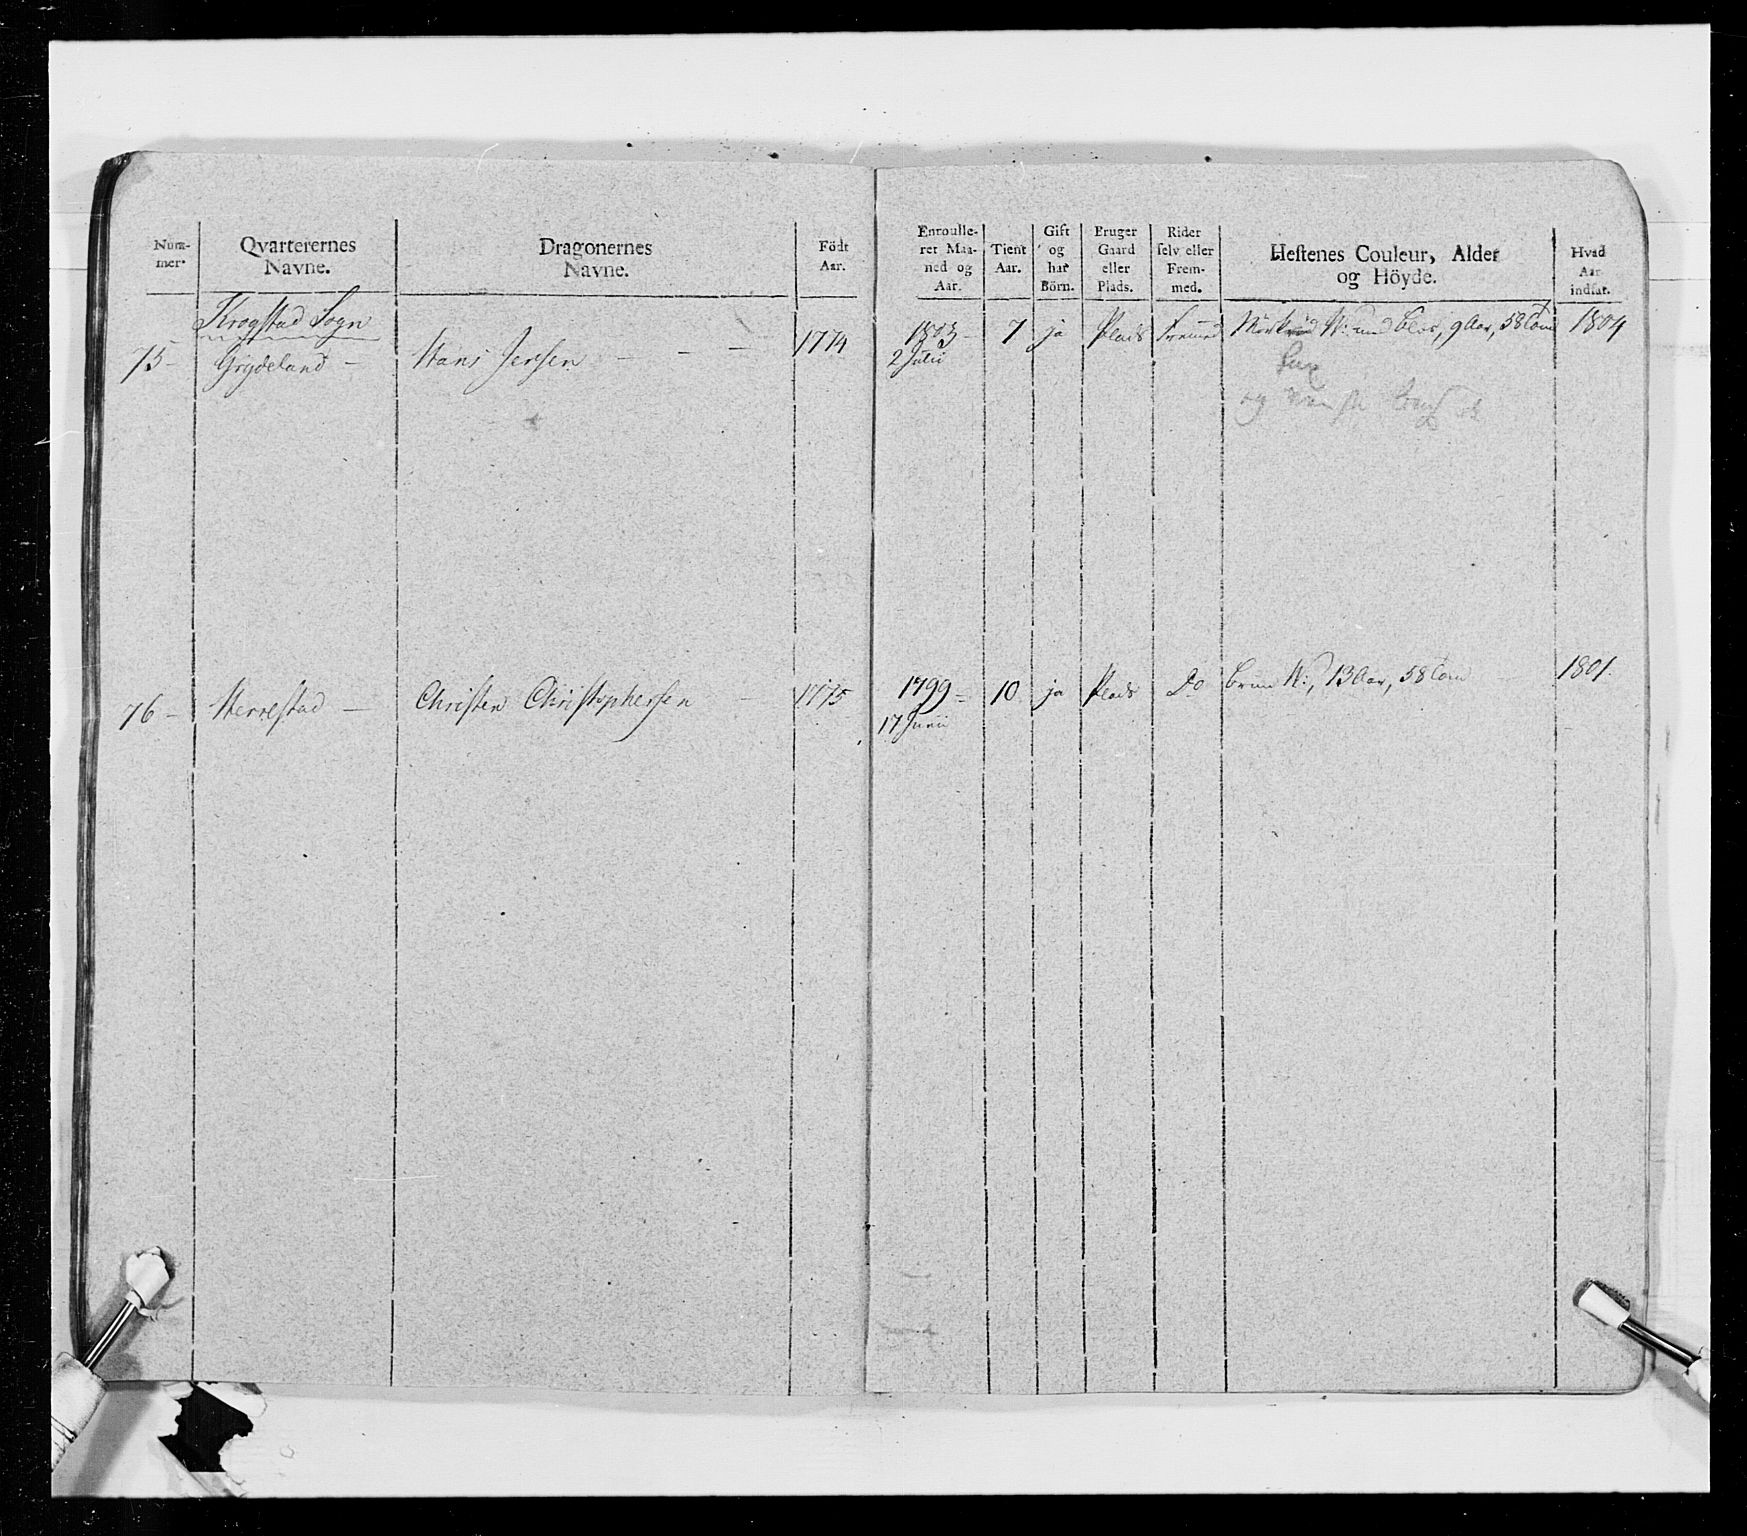 Num-
mer.
Qvarterernes
Navne.
Dragonernes
Navne.
Födt
Aar.
Enroulle-
ret Maa-
ned og
Aar.
Tient
Aar.
Gift
og
har
Börn.
Bruger
Gaard
eller
Plads.
Rider
selv eller
Frem-
med.
Hestenes Couleur, Alder
og Höyde.
Hvad
Aar
indsat.
Krogstad Sogn
75 - Grydeland - Hans Jensen - - - 1774 1803 - 7 ja Plads Fremed H: med Blis, 9 Aar, 58 Tom 1804
2 Julii
og
76 - Herrestad - Christen Christophersen - 1775 1799 - 10 ja Plads Do brun H:, 13 Aar, 58 Tom - 1801.
17 Junii